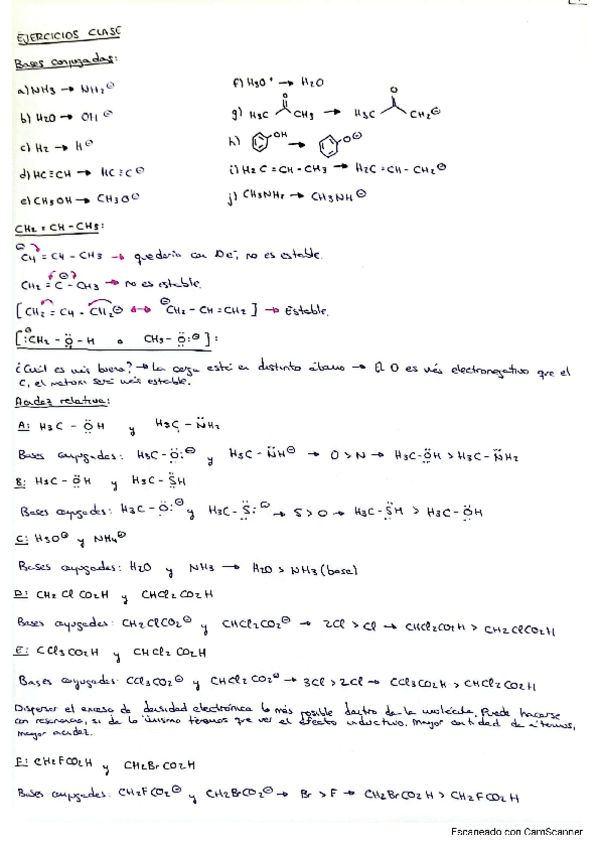 EJERCICIOS CLASE
Bases conjugadas:
a) NH3 → NH2⊖
b) H2O → OH⊖
c) H2 → H⊖
d) HC≡CH → HC≡C⊖
e) CH3OH → CH3O⊖
f) H3O⁺ → H2O
g) H3C O CH3 → H3C O CH2⊖
h) OH → O⊖
i) H2C=CH-CH3 → H2C=CH-CH2⊖
j) CH3NH2 → CH3NH⊖
CH2=CH-CH3:
⊖CH=CH-CH3 → quedaría con De⁻, no es estable.
CH2=C⊖-CH3 → no es estable.
[CH2=CH-CH2⊖ ↔ ⊖CH2-CH=CH2] → Estable.
[:⊖CH2-Ö-H o CH3-Ö:⊖]:
¿Cuál es más buena? → La carga está en distinto átomo → El O es más electronegativo que el
C, el será más estable.
Acidez relativa:
A: H3C-ÖH y H3C-N̈H2
Bases conjugadas: H3C-Ö:⊖ y H3C-N̈H⊖ → O>N → H3C-ÖH > H3C-N̈H2
B: H3C-ÖH y H3C-S̈H
Bases conjugadas: H3C-Ö:⊖ y H3C-S̈:⊖ → S>O → H3C-S̈H > H3C-ÖH
C: H3O⊕ y NH4⊕
Bases conjugadas: H2O y NH3 → H2O > NH3 (base)
D: CH2ClCO2H y CHCl2CO2H
Bases conjugadas: CH2ClCO2⊖ y CHCl2CO2⊖ → 2Cl > Cl → CHCl2CO2H > CH2ClCO2H
E: CCl3CO2H y CHCl2CO2H
Bases conjugadas: CCl3CO2⊖ y CHCl2CO2⊖ → 3Cl > 2Cl → CCl3CO2H > CHCl2CO2H
Dispersar el exceso de densidad electrónica lo más posible dentro de la molécula. Puede hacerse
con resonancia, si da lo mismo tenemos que ver el efecto inductivo. Mayor cantidad de átomos,
mayor acidez.
F: CH2FCO2H y CH2BrCO2H
Bases conjugadas: CH2FCO2⊖ y CH2BrCO2⊖ → Br > F → CH2BrCO2H > CH2FCO2H
Escaneado con CamScanner